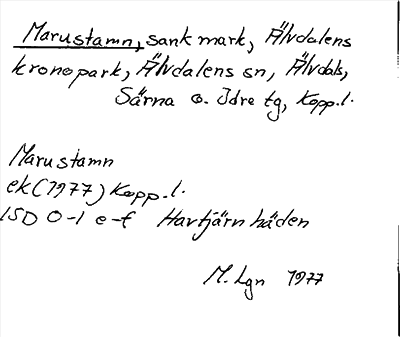 Marustamn, sank mark, Älvdalens
kronopark, Älvdalens sn, Älvdals,
Särna o. Idre tg, Kopp.l.
Marustamn
ek (1977) Kopp.l.
15D 0-1 e-f Havtjärnhäden
M. Lgn 1977